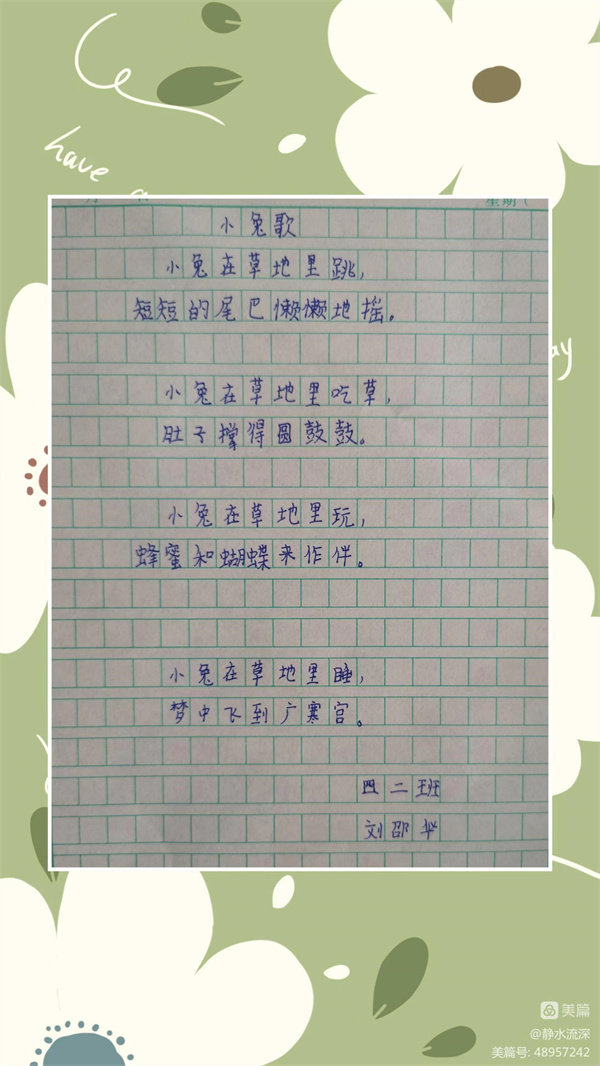 have a
小兔歌
小兔在草地里跳,
短短的尾巴懒懒地摇。
小兔在草地里吃草,
肚子撑得圆鼓鼓。
小兔在草地里玩,
蜂蜜和蝴蝶来作伴。
小兔在草地里睡,
梦中飞到广寒宫。
四二班
刘邵华
ay
美篇
@静水流深
美篇号: 48957242